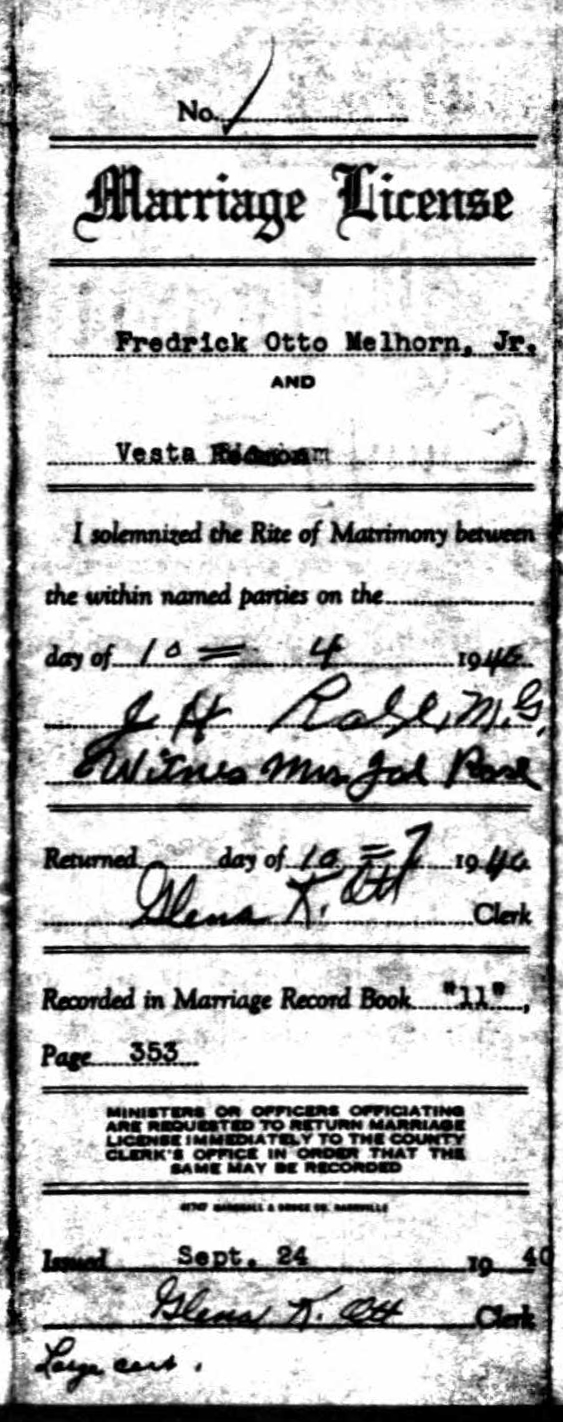 No.
Marriage License
Fredrick Otto Melhorn, Jr.
AND
Vesta
I solemnized the Rite of Matrimony between
the within named parties on the
day of 10 = 4 1940
J H M.G.
Witnes Mrs.
Returned day of 10 = 7 1940
Glena K. Ott Clerk
Recorded in Marriage Record Book "11",
Page 353
MINISTERS OR OFFICERS OFFICIATING
ARE REQUESTED TO RETURN MARRIAGE
LICENSE IMMEDIATELY TO THE COUNTY
CLERK'S OFFICE IN ORDER THAT THE
SAME MAY BE RECORDED
MARSHALL & BRUCE CO. NASHVILLE
Issued Sept. 24 19 40
Glena K. Ott Clerk
Large cert.